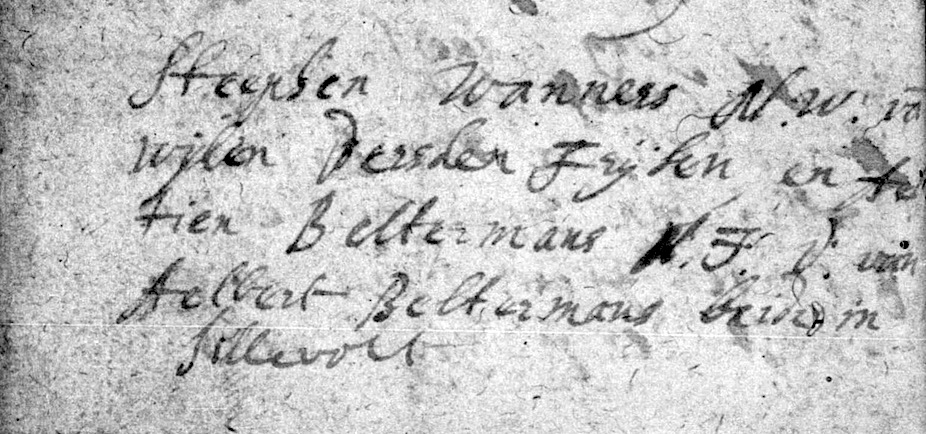 Steepsen Wanners N.W. vā
wijlen Dersken Frÿken en
tien Beltermans N. F. D. van
Aelbert Beltermans beide in
Sillevolt